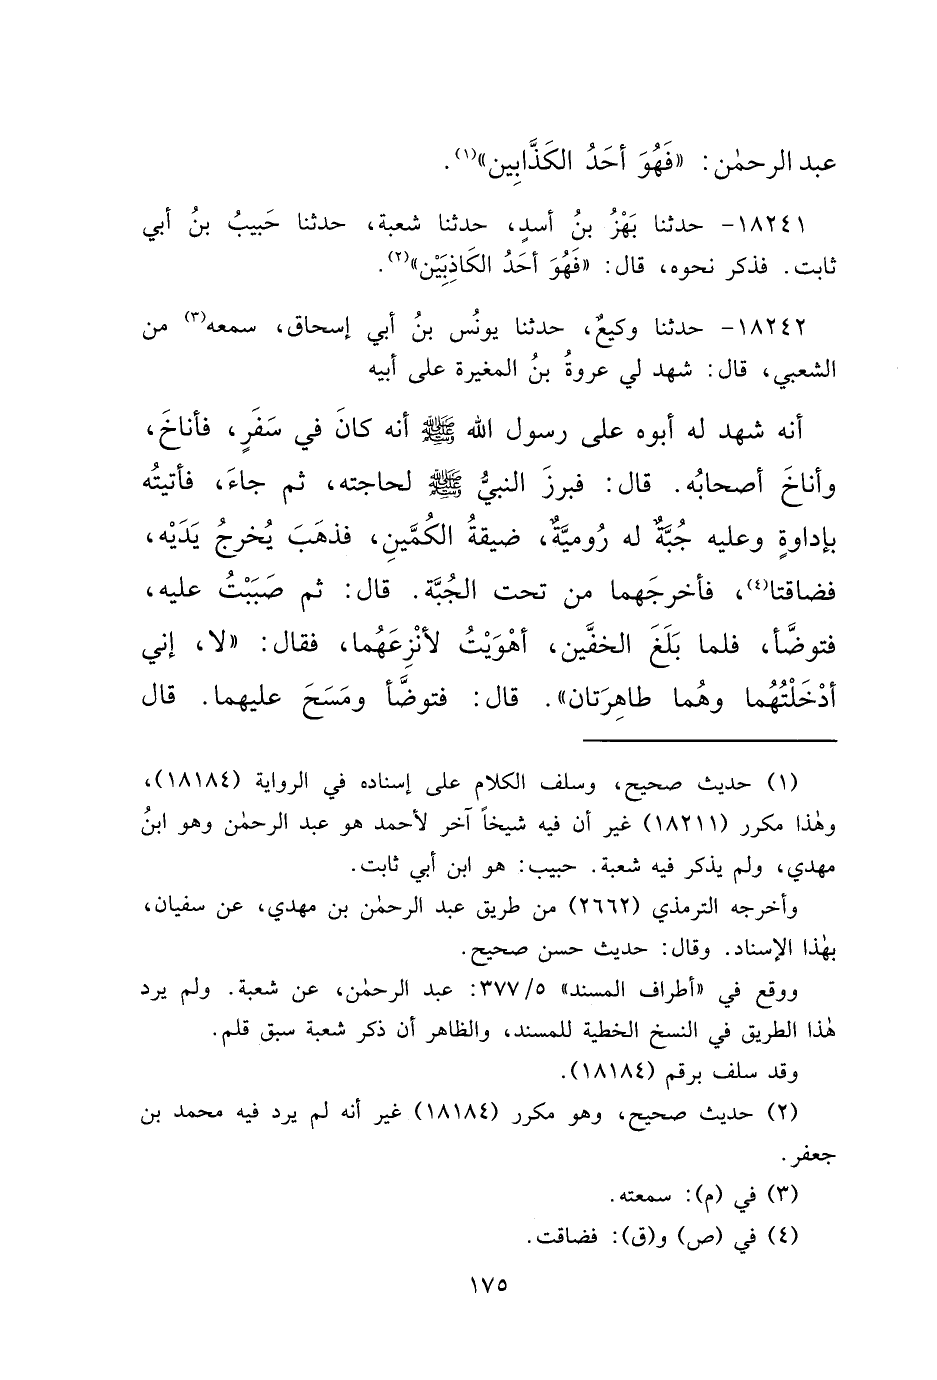 عبد الرحمٰن: «فَهُوَ أحَدُ الكَذَّابِين»(١).
١٨٢٤١- حدثنا بَهْزُ بنُ أسدٍ، حدثنا شعبة، حدثنا حَبيبُ بنُ أبي
ثابت. فذكر نحوه، قال: «فَهُوَ أحَدُ الكَاذِبَيْن»(٢).
١٨٢٤٢- حدثنا وكيعٌ، حدثنا يونُس بنُ أبي إسحاق، سمعه(٣) من
الشعبي، قال: شهد لي عروةُ بنُ المغيرة على أبيه
أنه شهد له أبوه على رسول الله ﷺ أنه كانَ في سَفَرٍ، فأناخَ،
وأناخَ أصحابُه. قال: فبرزَ النبيُّ ﷺ لحاجته، ثم جاءَ، فأتيتُه
بإداوةٍ وعليه جُبَّةٌ له رُوميَّةٌ، ضيقةُ الكُمَّينِ، فذهَبَ يُخرجُ يَدَيْه،
فضاقتا(٤)، فأخرجَهما من تحت الجُبَّة. قال: ثم صَبَبْتُ عليه،
فتوضَّأ، فلما بَلَغَ الخفَّين، أهْوَيْتُ لأنْزِعَهُما، فقال: «لا، إني
أدْخَلْتُهُما وهُما طاهِرَتان». قال: فتوضَّأ ومَسَحَ عليهما. قال
(١) حديث صحيح، وسلف الكلام على إسناده في الرواية (١٨١٨٤)،
وهٰذا مكرر (١٨٢١١) غير أن فيه شيخاً آخر لأحمد هو عبد الرحمٰن وهو ابنُ
مهدي، ولم يذكر فيه شعبة. حبيب: هو ابن أبي ثابت.
وأخرجه الترمذي (٢٦٦٢) من طريق عبد الرحمٰن بن مهدي، عن سفيان،
بهٰذا الإسناد. وقال: حديث حسن صحيح.
ووقع في «أطراف المسند» ٥/ ٣٧٧: عبد الرحمٰن، عن شعبة. ولم يرد
هٰذا الطريق في النسخ الخطية للمسند، والظاهر أن ذكر شعبة سبق قلم.
وقد سلف برقم (١٨١٨٤).
(٢) حديث صحيح، وهو مكرر (١٨١٨٤) غير أنه لم يرد فيه محمد بن
جعفر.
(٣) في (م): سمعته.
(٤) في (ص) و(ق): فضاقت.
١٧٥